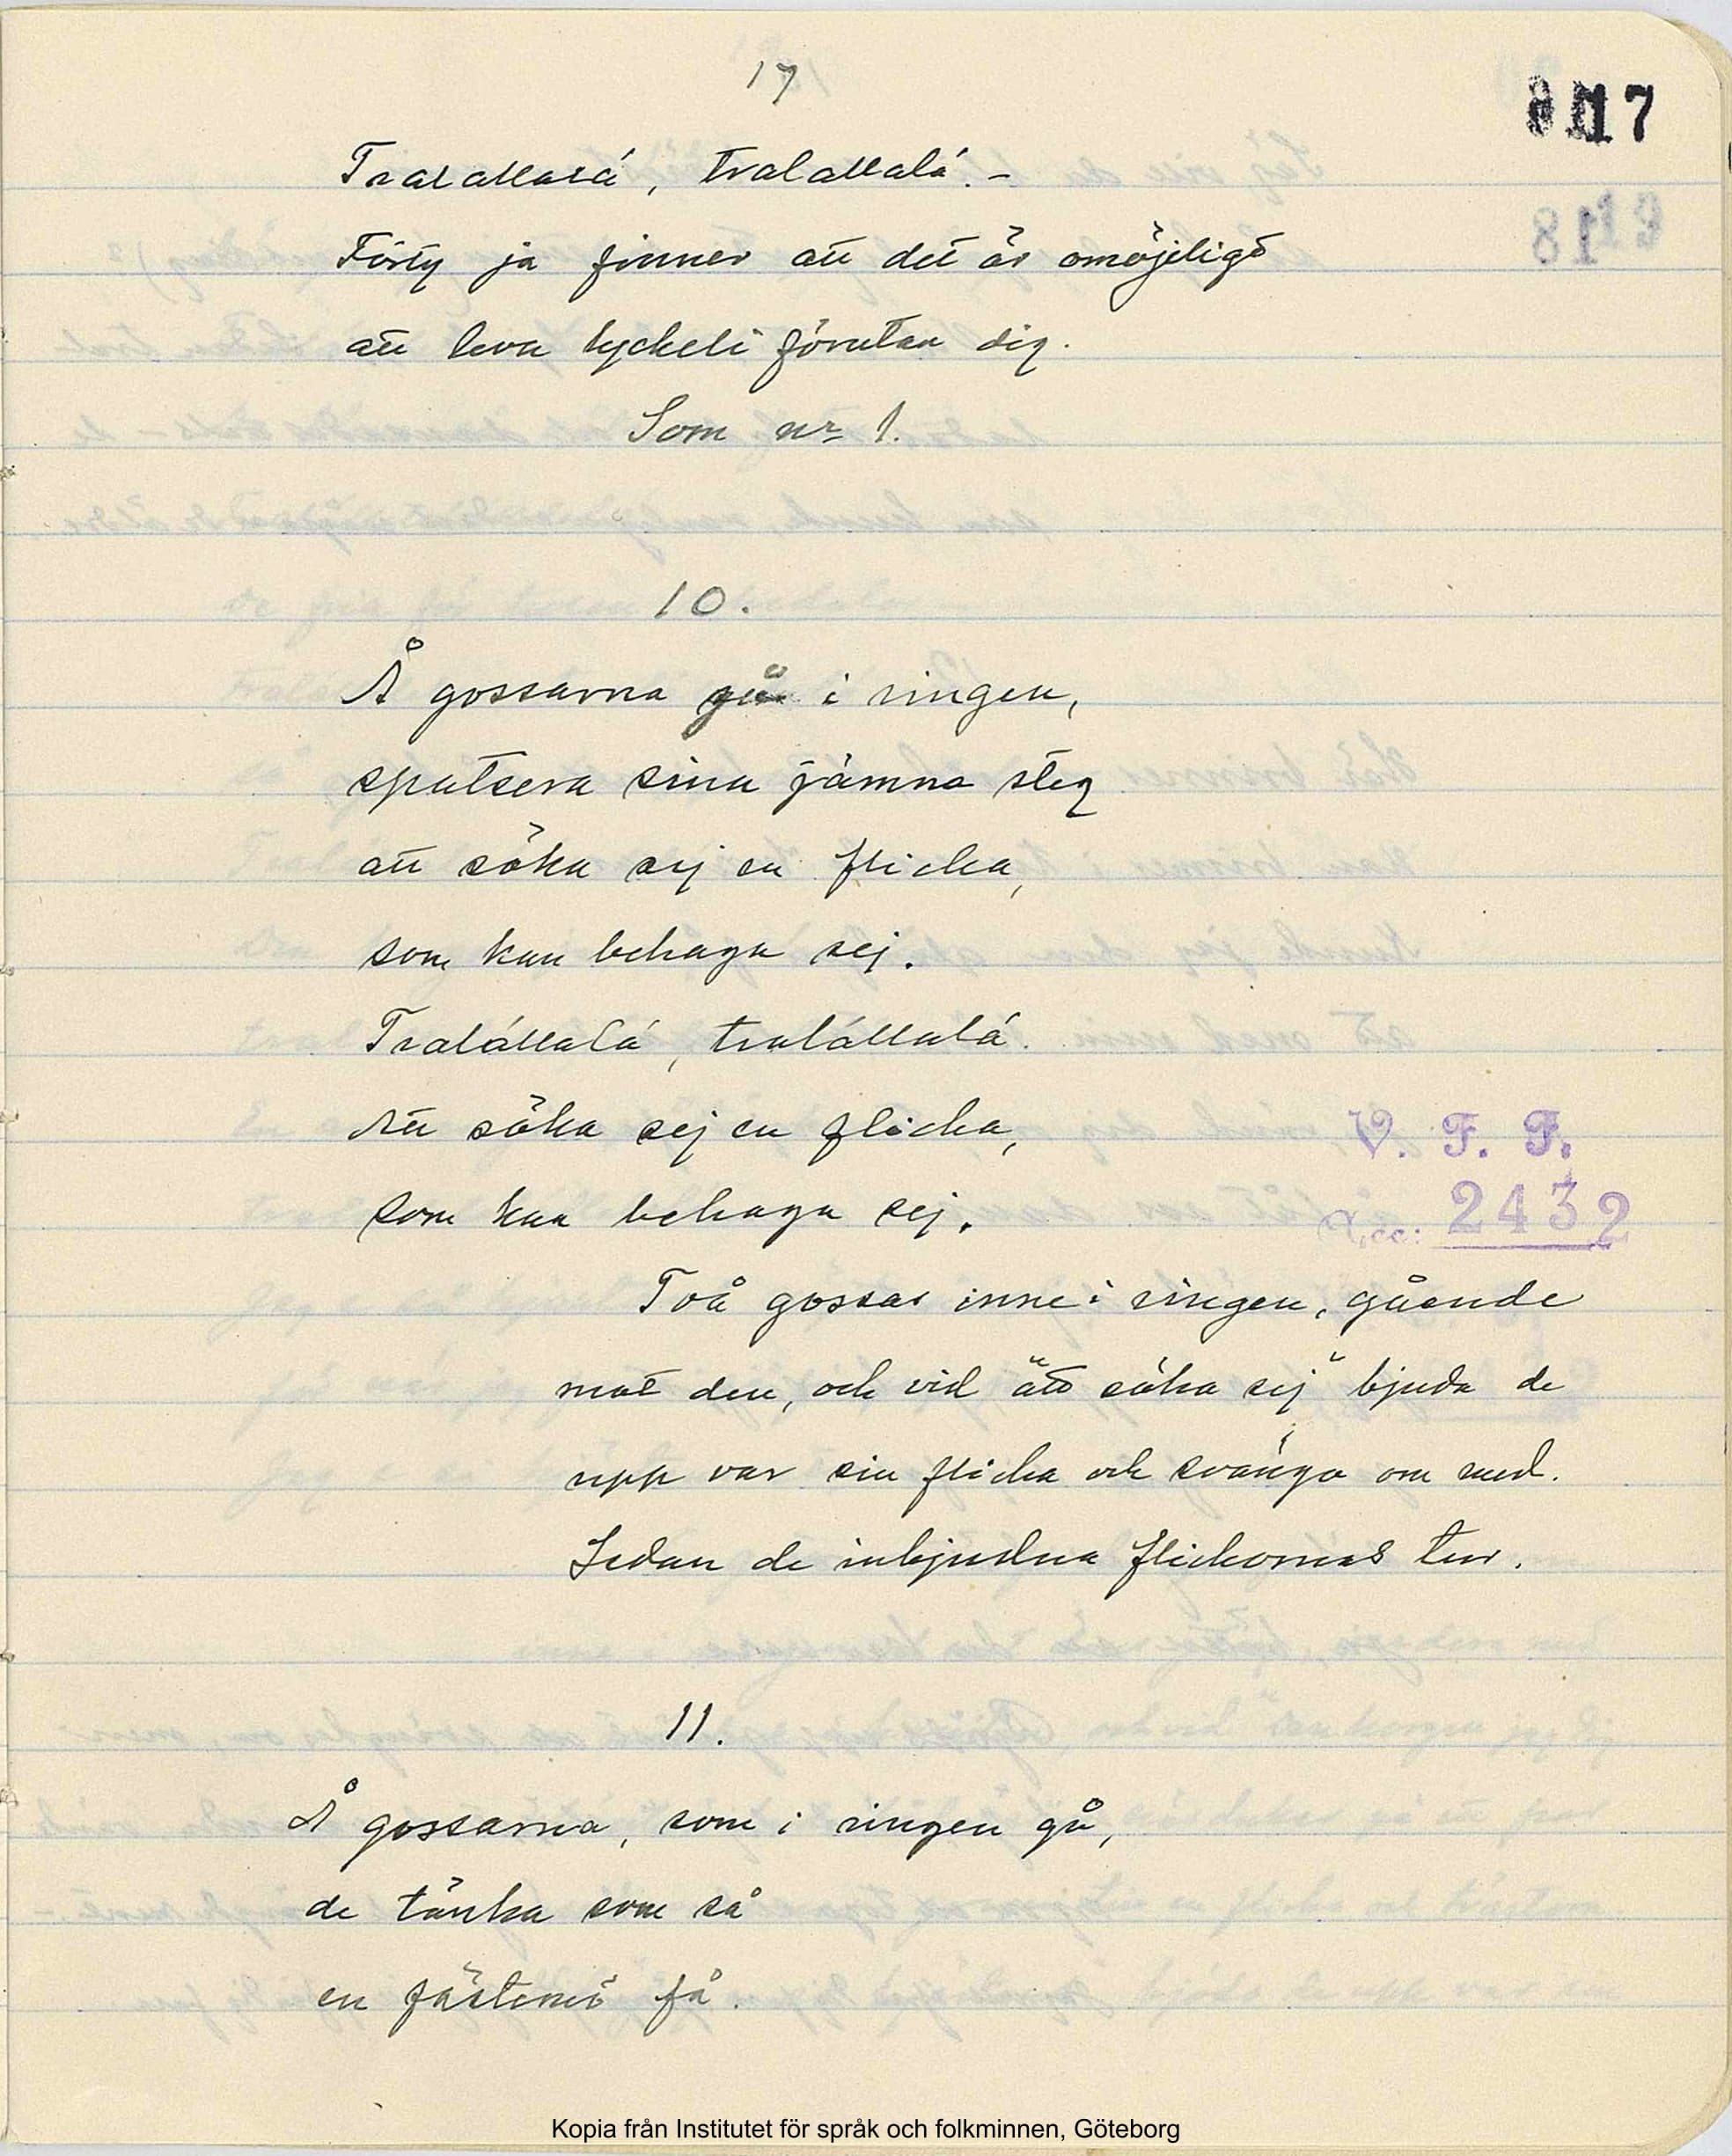 17
17
Tralallalá, tralallalá. –
Förty ja finner att det är omöjeligt
att leva lyckeli förutan dig.
Som nr 1.
10.
Å gossarna gå i ringen,
spatsera sina jämna steg
att söka sej en flicka,
som kan behaga sej.
Tralállalá, tralállalá.
Att söka sej en flicka,
som kan behaga sej.
V. F. F.
Acc: 2432
Två gossar inne i ringen, gående
mot den, och vid "att söka sej" bjuda de
upp var sin flicka och svänga om med.
Sedan de inbjudna flickornas tur.
11.
Å gossarna, som i ringen gå,
de tänka som så
en fästemö få.
Kopia från Institutet för språk och folkminnen, Göteborg